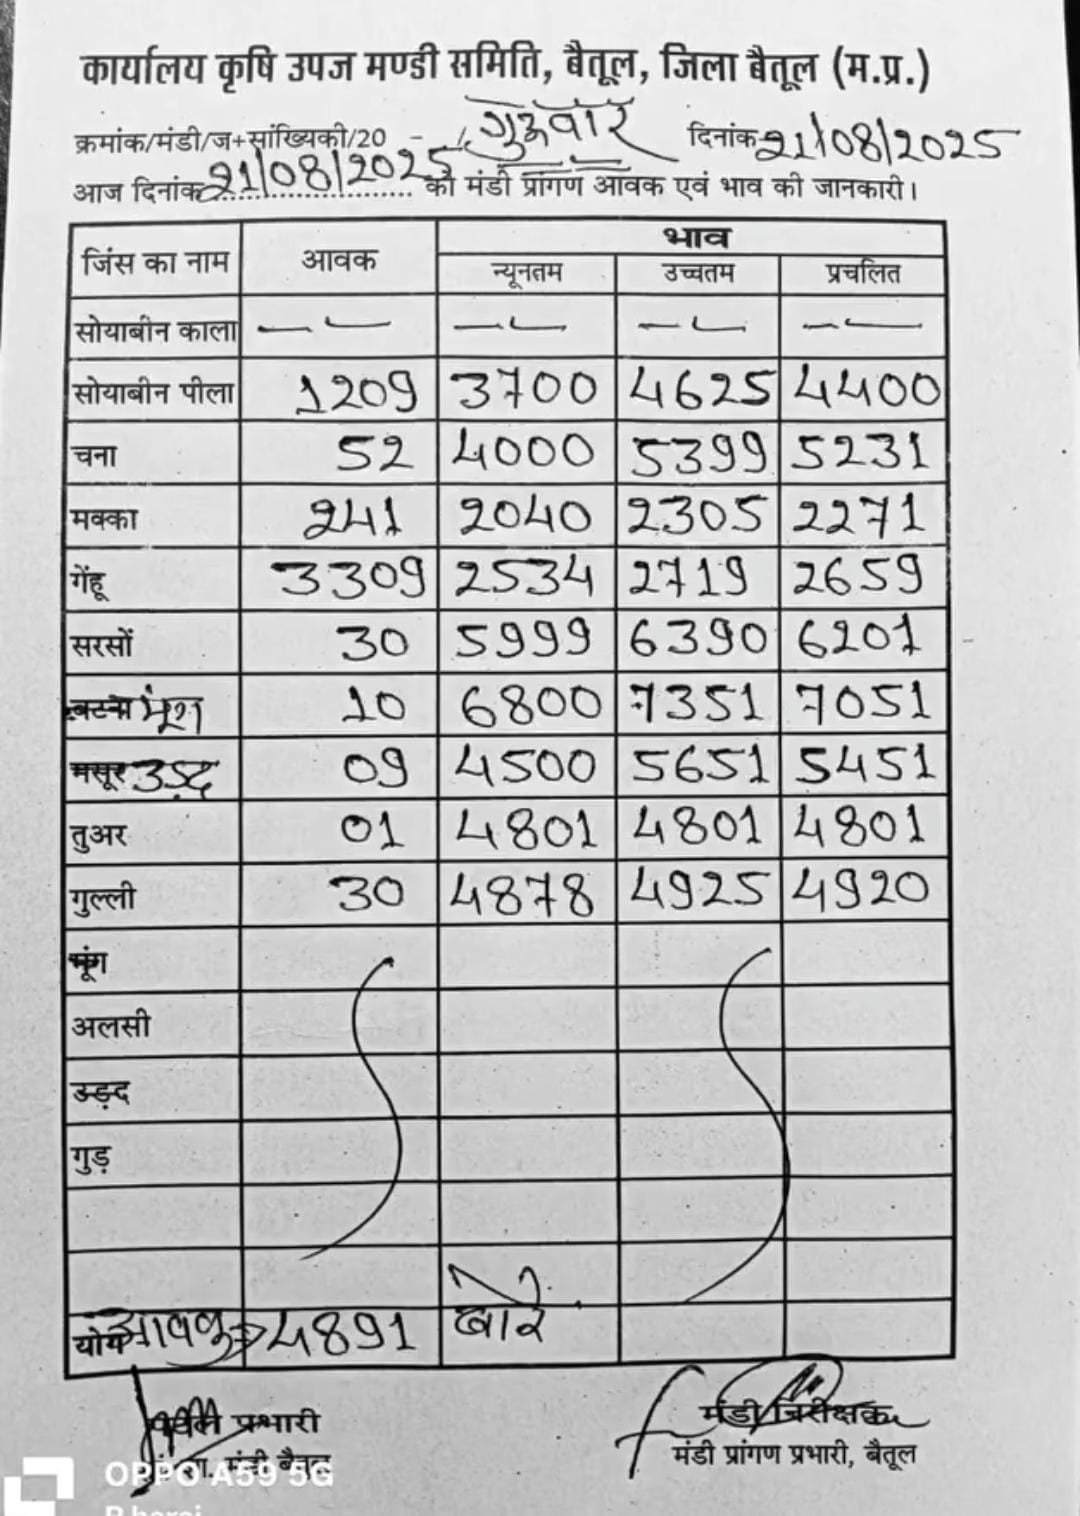 कार्यालय कृषि उपज मण्डी समिति, बैतूल, जिला बैतूल (म.प्र.)
क्रमांक/मंडी/ज+सांख्यिकी/20 - गुरूवार दिनांक 21/08/2025
आज दिनांक 21/08/2025 को मंडी प्रांगण आवक एवं भाव की जानकारी।
जिंस का नाम आवक भाव
न्यूनतम उच्चतम प्रचलित
सोयाबीन काला — — — — — — — —
सोयाबीन पीला 1209 3700 4625 4400
चना 52 4000 5399 5231
मक्का 241 2040 2305 2271
गेंहू 3309 2534 2719 2659
सरसों 30 5999 6390 6201
बटना मूंग 10 6800 7351 7051
मसूर उड़द 09 4500 5651 5451
तुअर 01 4801 4801 4801
गुल्ली 30 4878 4925 4920
मूंग
अलसी
उड़द
गुड़
योग आवक → 4891 बोरे
प्रभारी मंडी निरीक्षक
मंडी बैतूल मंडी प्रांगण प्रभारी, बैतूल
OPPO A59 5G